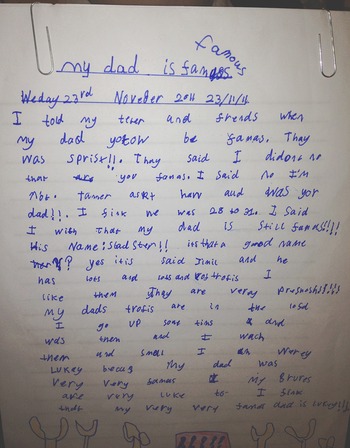 famous
my dad is famoss
Weday 23rd Novefer 2011 23/11/11
I told my teter and frends when
my dad yotow be famas. Thay
was sprisr!!. Thay said I didont no
that you famas. I said no I'm
not. Tamer askt haw aud was yor
dad!!. I fink he was 28 to 31. I said
I wish that my dad is still famas!!!
His Name: Slad Ster!! is that a good name
yes it is said Jimic and he
has lots and loss and trofis I
like them Thay are verey preshoshs!!!!
my dads trofis are in the losd
I go up som tims and
was them and I wach
them and smel I am verey
Lukey becus my dad was
very very famas my Bruvs
are very luke to I fink
that my very very famas dad is lukey!!!